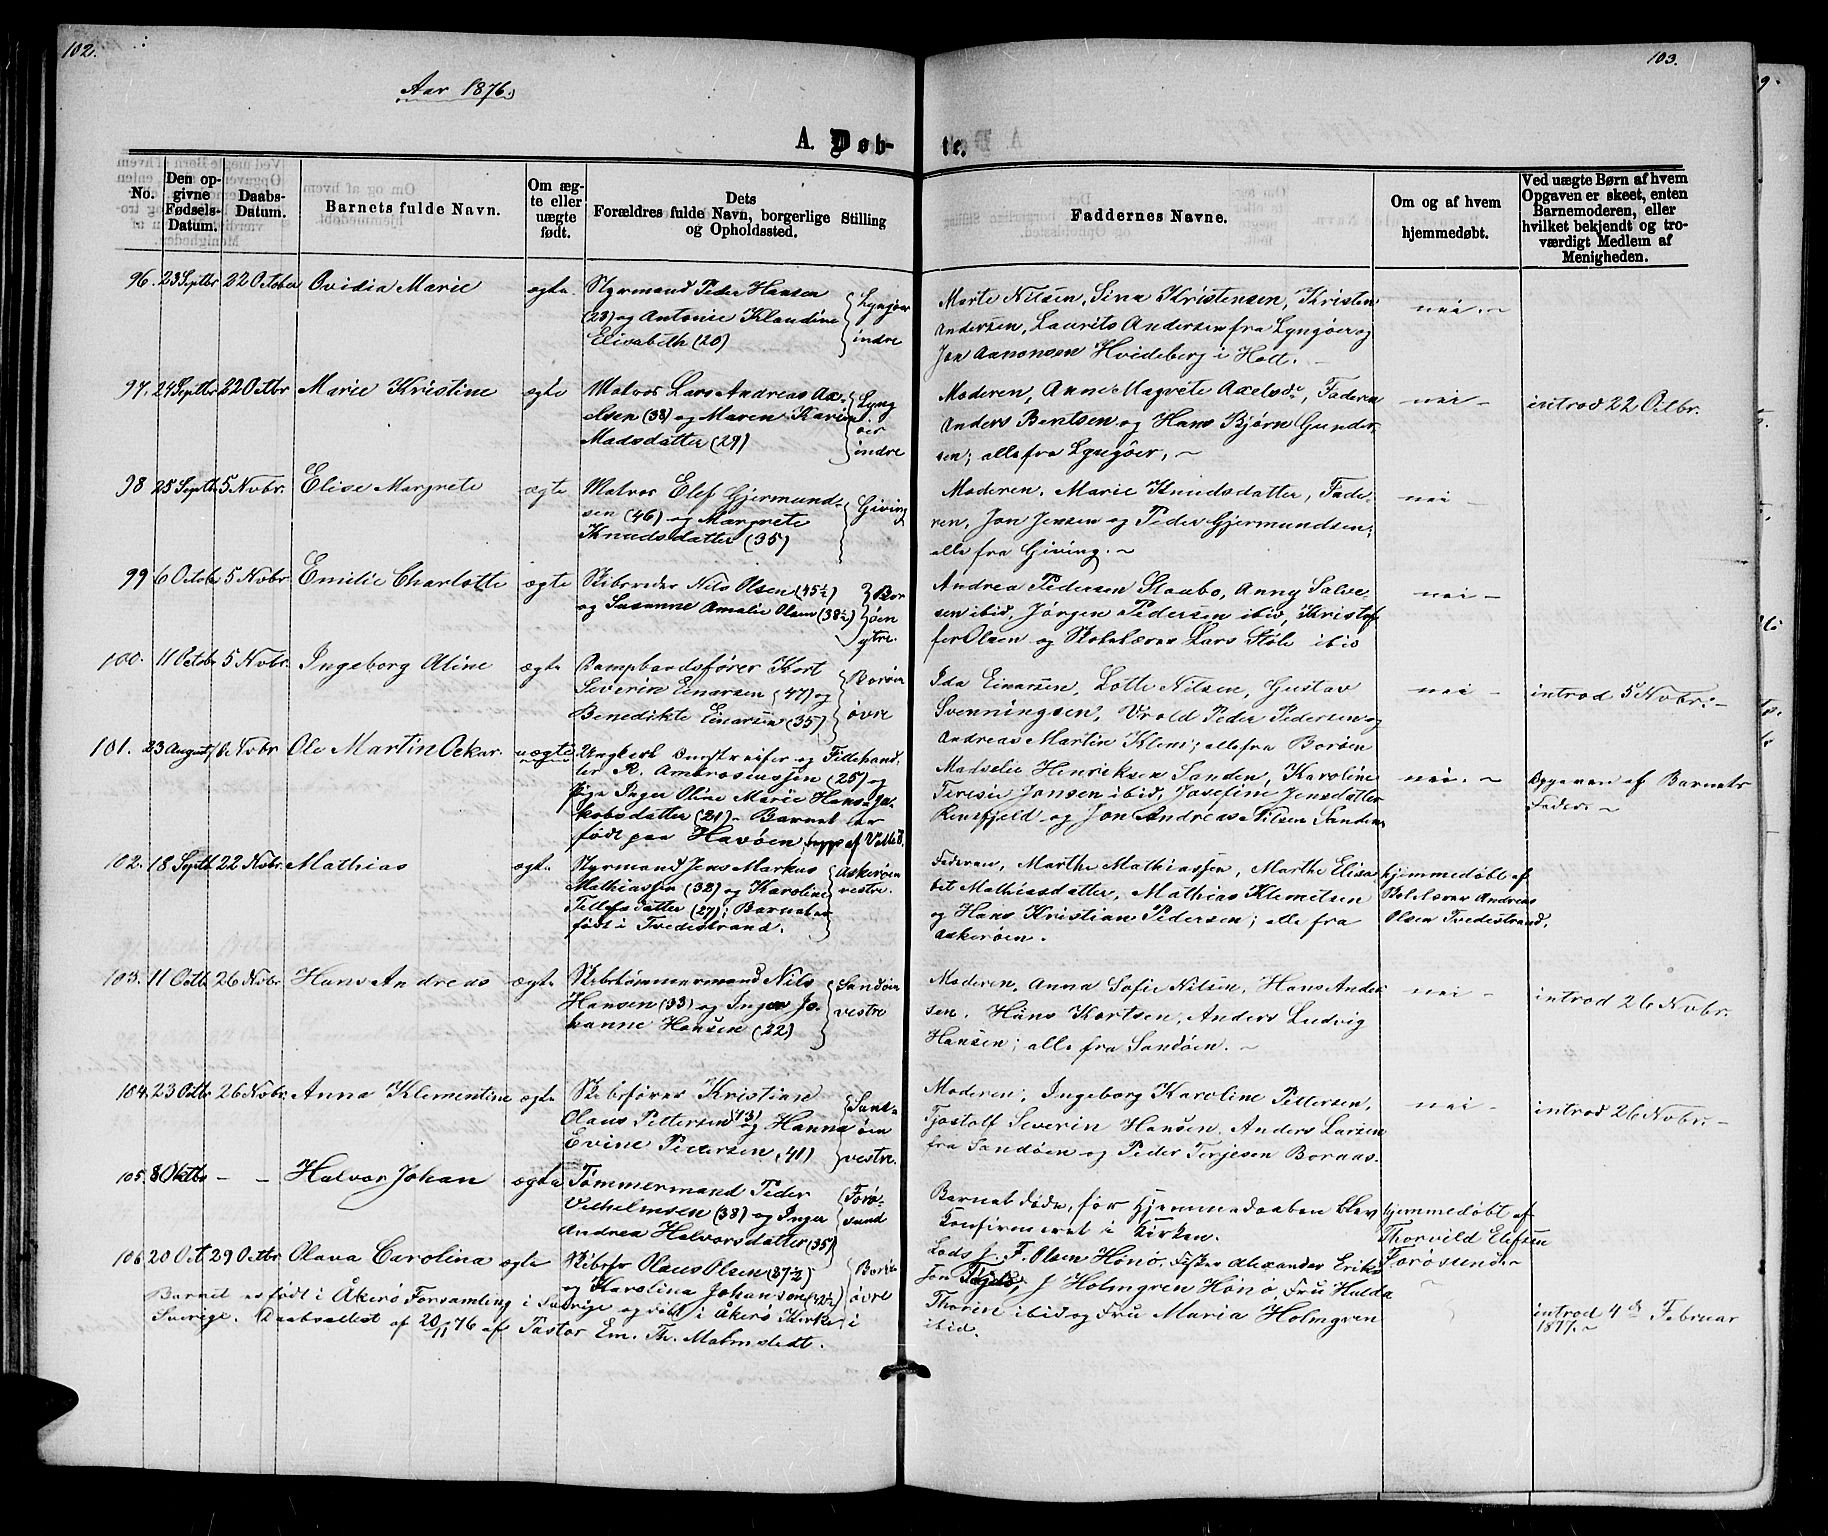 102.
103.
Aar 1876.
A. Døb-
te.
No.
Den op-
givne
Fødsels-
Datum.
Daabs-
Datum.
Barnets fulde Navn.
Om æg-
te eller
uægte
født.
Dets
Forældres fulde Navn, borgerlige Stilling
og Opholdssted.
Faddernes Navne.
Om og af hvem
hjemmedøbt.
Ved uægte Børn af hvem
Opgaven er skeet, enten
Barnemoderen, eller
hvilket bekjendt og tro-
værdigt Medlem af
Menigheden.
96. 23 Septbr 22 October Ovidia Marie ægte Styrmand Peder Hansen
(23) og Antonie Klaudine
Elisabeth (20)
Lyngøer
indre
Marte Nilsen, Sina Kristensen, Kristen
Andersen, Laurits Andersen fra Lyngøer og
Jon Aanonsen Hvideberg i Holt. -
nei. -
97. 24 Septbr 22 Octbr Marie Kristine ægte Matros Lars Andreas Ax-
elsen (38) og Maren Karine
Madsdatter (29)
Lyng
øer
indre
Moderen, Anne Magrete Axelsdr, Faderen
Anders Berntsen og Hans Bjørn Gunder-
sen; alle fra Lyngøer, -
nei -
introd 22 Octbr.
98 25 Septb 5 Nvbr. Elise Margrete ægte Matros Elef Gjermund-
sen (46) og Margrete
Knudsdatter (35)
Giving
Moderen, Marie Knudsdatter, Fade-
ren, Jon Jensen og Peder Gjermundsen;
alle fra Giving. -
nei -
99 6 Octob 5 Nvbr. Emilie Charlotte ægte Skibsreder Nils Olsen (45½)
og Susanne Amalie Olsen (38½)
Bor
øen
ytre.
Andrea Pedersen Staubo, Anny Salve-
sen ibid, Jørgen Pedersen ibid, Kristof-
fer Olsen og Skolelærer Lars Stole ibid
nei -
100. 11 Octbr 5 Nvbr. Ingeborg Aline ægte
Severin Einarsen (47) og
Benedikte Einarsen (35)
Borøen
øvre
Ida Einarsen, Lotte Nilsen, Gustav
Svenningsen, Vrold Peder Pedersen og
Andreas Martin Klem; alle fra Borøen
nei -
introd 5 Nvbr. -
101. 23 August Nvbr Ole Martin Oskar uægte Ungkarl og
R. Ambrosiussen (25) og
Pige Inger Oline Marie Hans-Ja-
kobsdatter (21). Barnet er
født paa Havøen,
Madselie Henriksen Sanden, Karoline
Teresie Jonsen ibid, Josefine Jensdatter
og Jon Andreas Nilsen Sanden
nei. -
Opgaven af Barnets
Fader. -
102. 18 Septb 22 Nvbr. Mathias ægte Styrmand Jens Markus
Mathiassen (32) og Karoline
Tellefsdatter (27); Barnet er
født i Tvedestrand.
Askerøen
vestre.
Faderen, Marthe Mathiassen, Marthe Elisa-
bet Mathiasdatter, Mathias Klemetsen
og Hans Kristian Pedersen; alle fra
Askerøen.
hjemmedøbt af
Skolelærer Andreas
Olsen Tvedestrand.
103. 11 Octb 26 Nvbr. Hans Andreas ægte Skibstømmermand Nils
Hansen (33) og Inger Jo-
hanne Hansen (22)
Sandøen
vestre
Moderen, Anna Sofie Nilsen, Hans Ander-
sen, Hans Kortsen, Anders Ludvig
Hansen; alle fra Sandøen. -
nei -
introd 26 Nvbr.
104. 23 Octbr 26 Nvbr. Anna Klementine ægte Skibsfører Kristian
Olaus Pettersen (43) og Hanna
Evine Pedersen (41)
Sand-
øen
vestre.
Moderen, Ingeborg Karoline Pettersen,
Tjostolf Severin Hansen, Anders Larsen
fra Sandøen og Peder Terjesen Boraas.
nei -
introd 26 Nvbr. -
105. 8 Oktbr - - Halvor Johan ægte Tømmermand Peder
Vilhelmsen (38) og Inger
Andrea Halvorsdatter (35)
Forø-
sund
Barnet døde, før Hjemmedaaben blev
Konfirmeret i Kirken.
hjemmedøbt af
Thorvild Elefsen
Forøsund -
106. 20 Oct 29 Octbr. Olava Carolina ægte Skibsfr Olaus Olsen (37½)
og Karolina Johanson (42½)
Borøen
øvre
Barnet er født i Åkerø Forsamling i Sverige og døbt i Åkerø Kirke i
Sverige. Daabsattest af 20/11 76 af Pastor Em. Th. Malmstedt.
Lods J. F. Olsen Hönö, Fisker Alexander Eriks-
son ibid, J Holmgren Hönö, Fru Hulda
Thorin ibid og Fru Maria Holmgren
ibid.
introd 4de Februar
1877. -